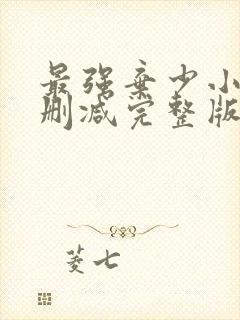 最强弃少小
删减完整版
菱七